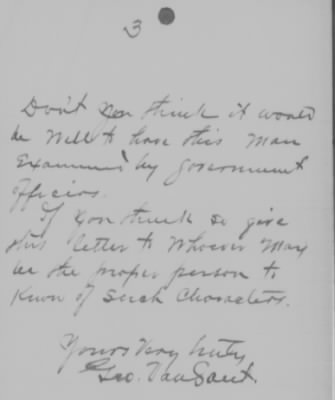 3
Don't you think it would
be well to have this man
Examined by government
officers.
If you think so give
this letter to whoever may
be the proper person to
know of such characters.
Yours very truly
Geo. VanSant.